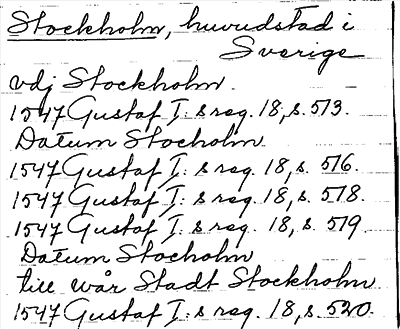 Stockholm, huvudstad i
Sverige
vdj Stockholm
1547 Gustaf I:s reg. 18, s. 513.
Datum Stocholm
1547 Gustaf I:s reg. 18, s. 516.
1547 Gustaf I:s reg. 18, s. 518.
1547 Gustaf I:s reg. 18, s. 519.
Datum Stocholm
till wår Stadt Stockholm
1547 Gustaf I:s reg. 18, s. 520.